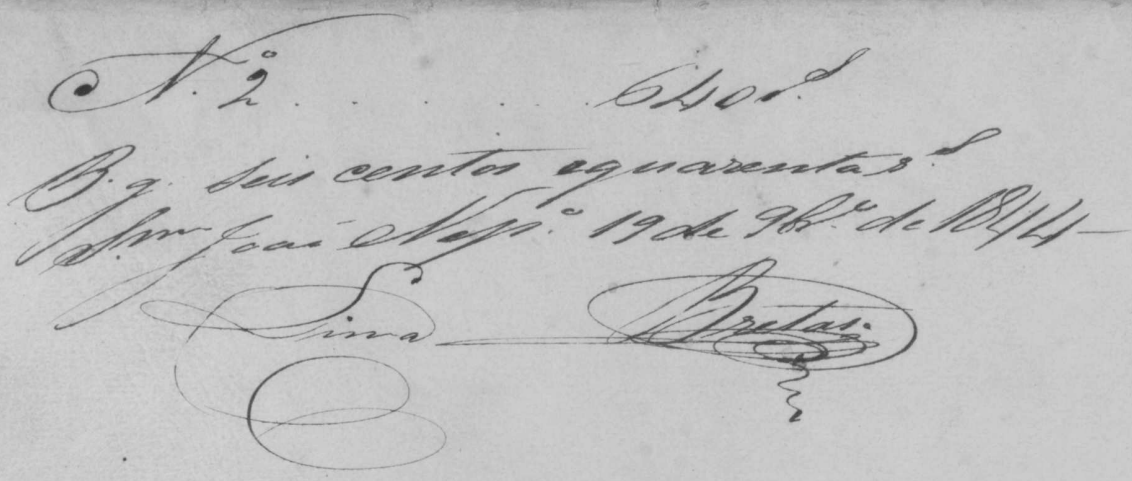 N.º 2 . . . . . . . 640 r.s
P. g. seis centos equarenta r.s
S. João Nep.º 19 de 9br.º de 1844 —
Lima Bretas.